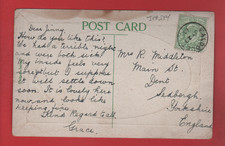 POST CARD
Dear Jinny.
How do you like this?
We had a terrible night
and were both sick
My inside feels very
I suppose
it will settle down
soon. It is lovely here
now and
keeping fine.
Kind Regards to all
Grace.
Mrs R. Middleton
Main St.
Dent
Sedbergh,
Yorkshire
England